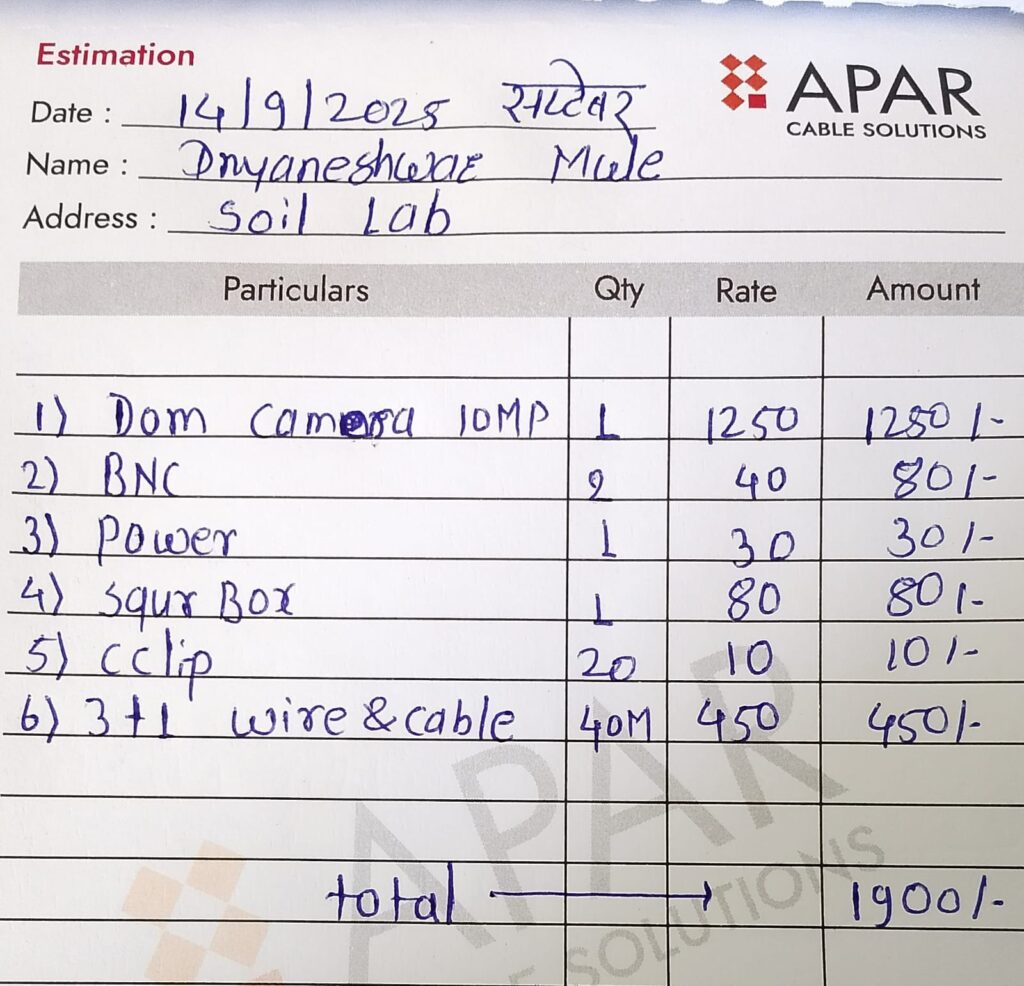 Estimation
APAR
CABLE SOLUTIONS
Date : 14/9/2025 सप्टेंबर
Name : Dnyaneshwar Mule
Address : Soil Lab
Particulars Qty Rate Amount
1) Dom camera 10MP 1 1250 1250/-
2) BNC 2 40 80/-
3) Power 1 30 30/-
4) squr Box 1 80 80/-
5) C clip 20 10 10/-
6) 3+1 wire & cable 40M 450 450/-
total → 1900/-
APAR
E SOLUTIONS